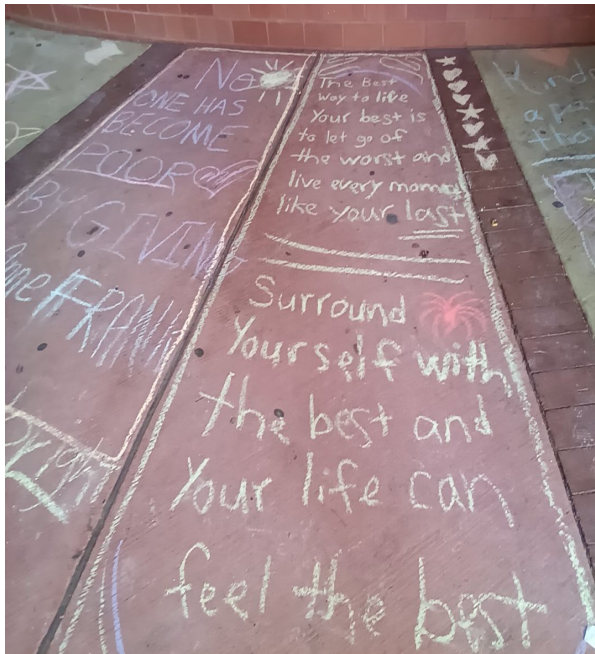 No
ONE HAS
BECOME
POOR
BY GIVING
Anne FRANK
brigh
The Best
Way to live
Your best is
to let go of
the worst and
live every moment
like your last
Surround
Yourself with
the best and
Your life can
feel the best
Kind
a pa
tho